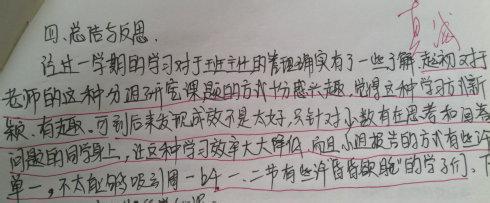 四、总结与反思.
真诚
经过一学期的学习对于班主任的管理确实有了一些了解,起初对于
老师的这种分组研究课题的方式十分感兴趣,觉得这种学习方式新
颖、有趣。可到后来发现成效不是太好,只针对少数有在思考和回答
问题的同学身上,让这种学习效率大大降低,而且小组报告的方式有些许
单一,不太能够吸引周一b4一、二节有些许“昏昏欲睡”的学子们、下